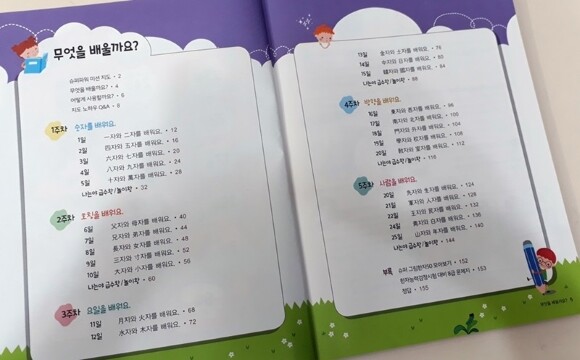 무엇을 배울까요?
슈퍼파워 미션 지도 • 2
무엇을 배울까요? • 4
어떻게 사용할까요? • 6
지도 노하우 Q&A • 8
1주차 숫자를 배워요.
1일 一자와 二자를 배워요. • 12
2일 四자와 五자를 배워요. • 16
3일 六자와 七자를 배워요. • 20
4일 八자와 九자를 배워요. • 24
5일 十자와 萬자를 배워요. • 28
나는야 급수왕/놀이왕 • 32
2주차 호칭을 배워요.
6일 父자와 母자를 배워요. • 40
7일 兄자와 弟자를 배워요. • 44
8일 長자와 女자를 배워요. • 48
9일 三자와 寸자를 배워요. • 52
10일 大자와 小자를 배워요. • 56
나는야 급수왕/놀이왕 • 60
3주차 요일을 배워요.
11일 月자와 火자를 배워요. • 68
12일 水자와 木자를 배워요. • 72
13일 金자와 土자를 배워요. • 76
14일 日자를 배워요. • 80
15일 韓자와 國자를 배워요. • 84
나는야 급수왕/놀이왕 • 88
4주차 방향을 배워요.
16일 東자와 西자를 배워요. • 96
17일 南자와 北자를 배워요. • 100
18일 門자와 外자를 배워요. • 104
19일 學자와 校자를 배워요. • 108
20일 敎자와 室자를 배워요. • 112
나는야 급수왕/놀이왕 • 116
5주차 사람을 배워요.
先자와 生자를 배워요. • 124
軍자와 人자를 배워요. • 128
王자와 民자를 배워요. • 132
24일 靑자와 白자를 배워요. • 136
25일 山자와 年자를 배워요. • 140
나는야 급수왕/놀이왕 • 144
부록 슈퍼 그림한자50 모아보기 • 152
한자능력검정시험 대비 8급 문제지 • 153
정답 • 155